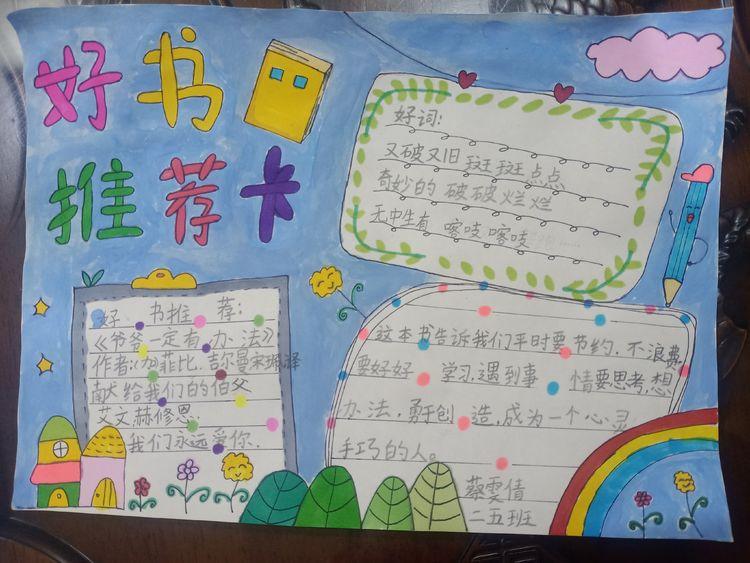 好书
推荐卡
好词:
又破又旧 斑斑点点
奇妙的 破破烂烂
无中生有 喀吱喀吱
好书推荐:
《爷爷一定有办法》
作者:(加)菲比.吉尔曼宋珮译
献给我们的伯父
艾文.赫修恩.
我们永远爱你.
这本书告诉我们平时要节约.不浪费,
要好好学习,遇到事情要思考,想
办法,勇于创造,成为一个心灵
手巧的人。
蔡雯倩
二五班